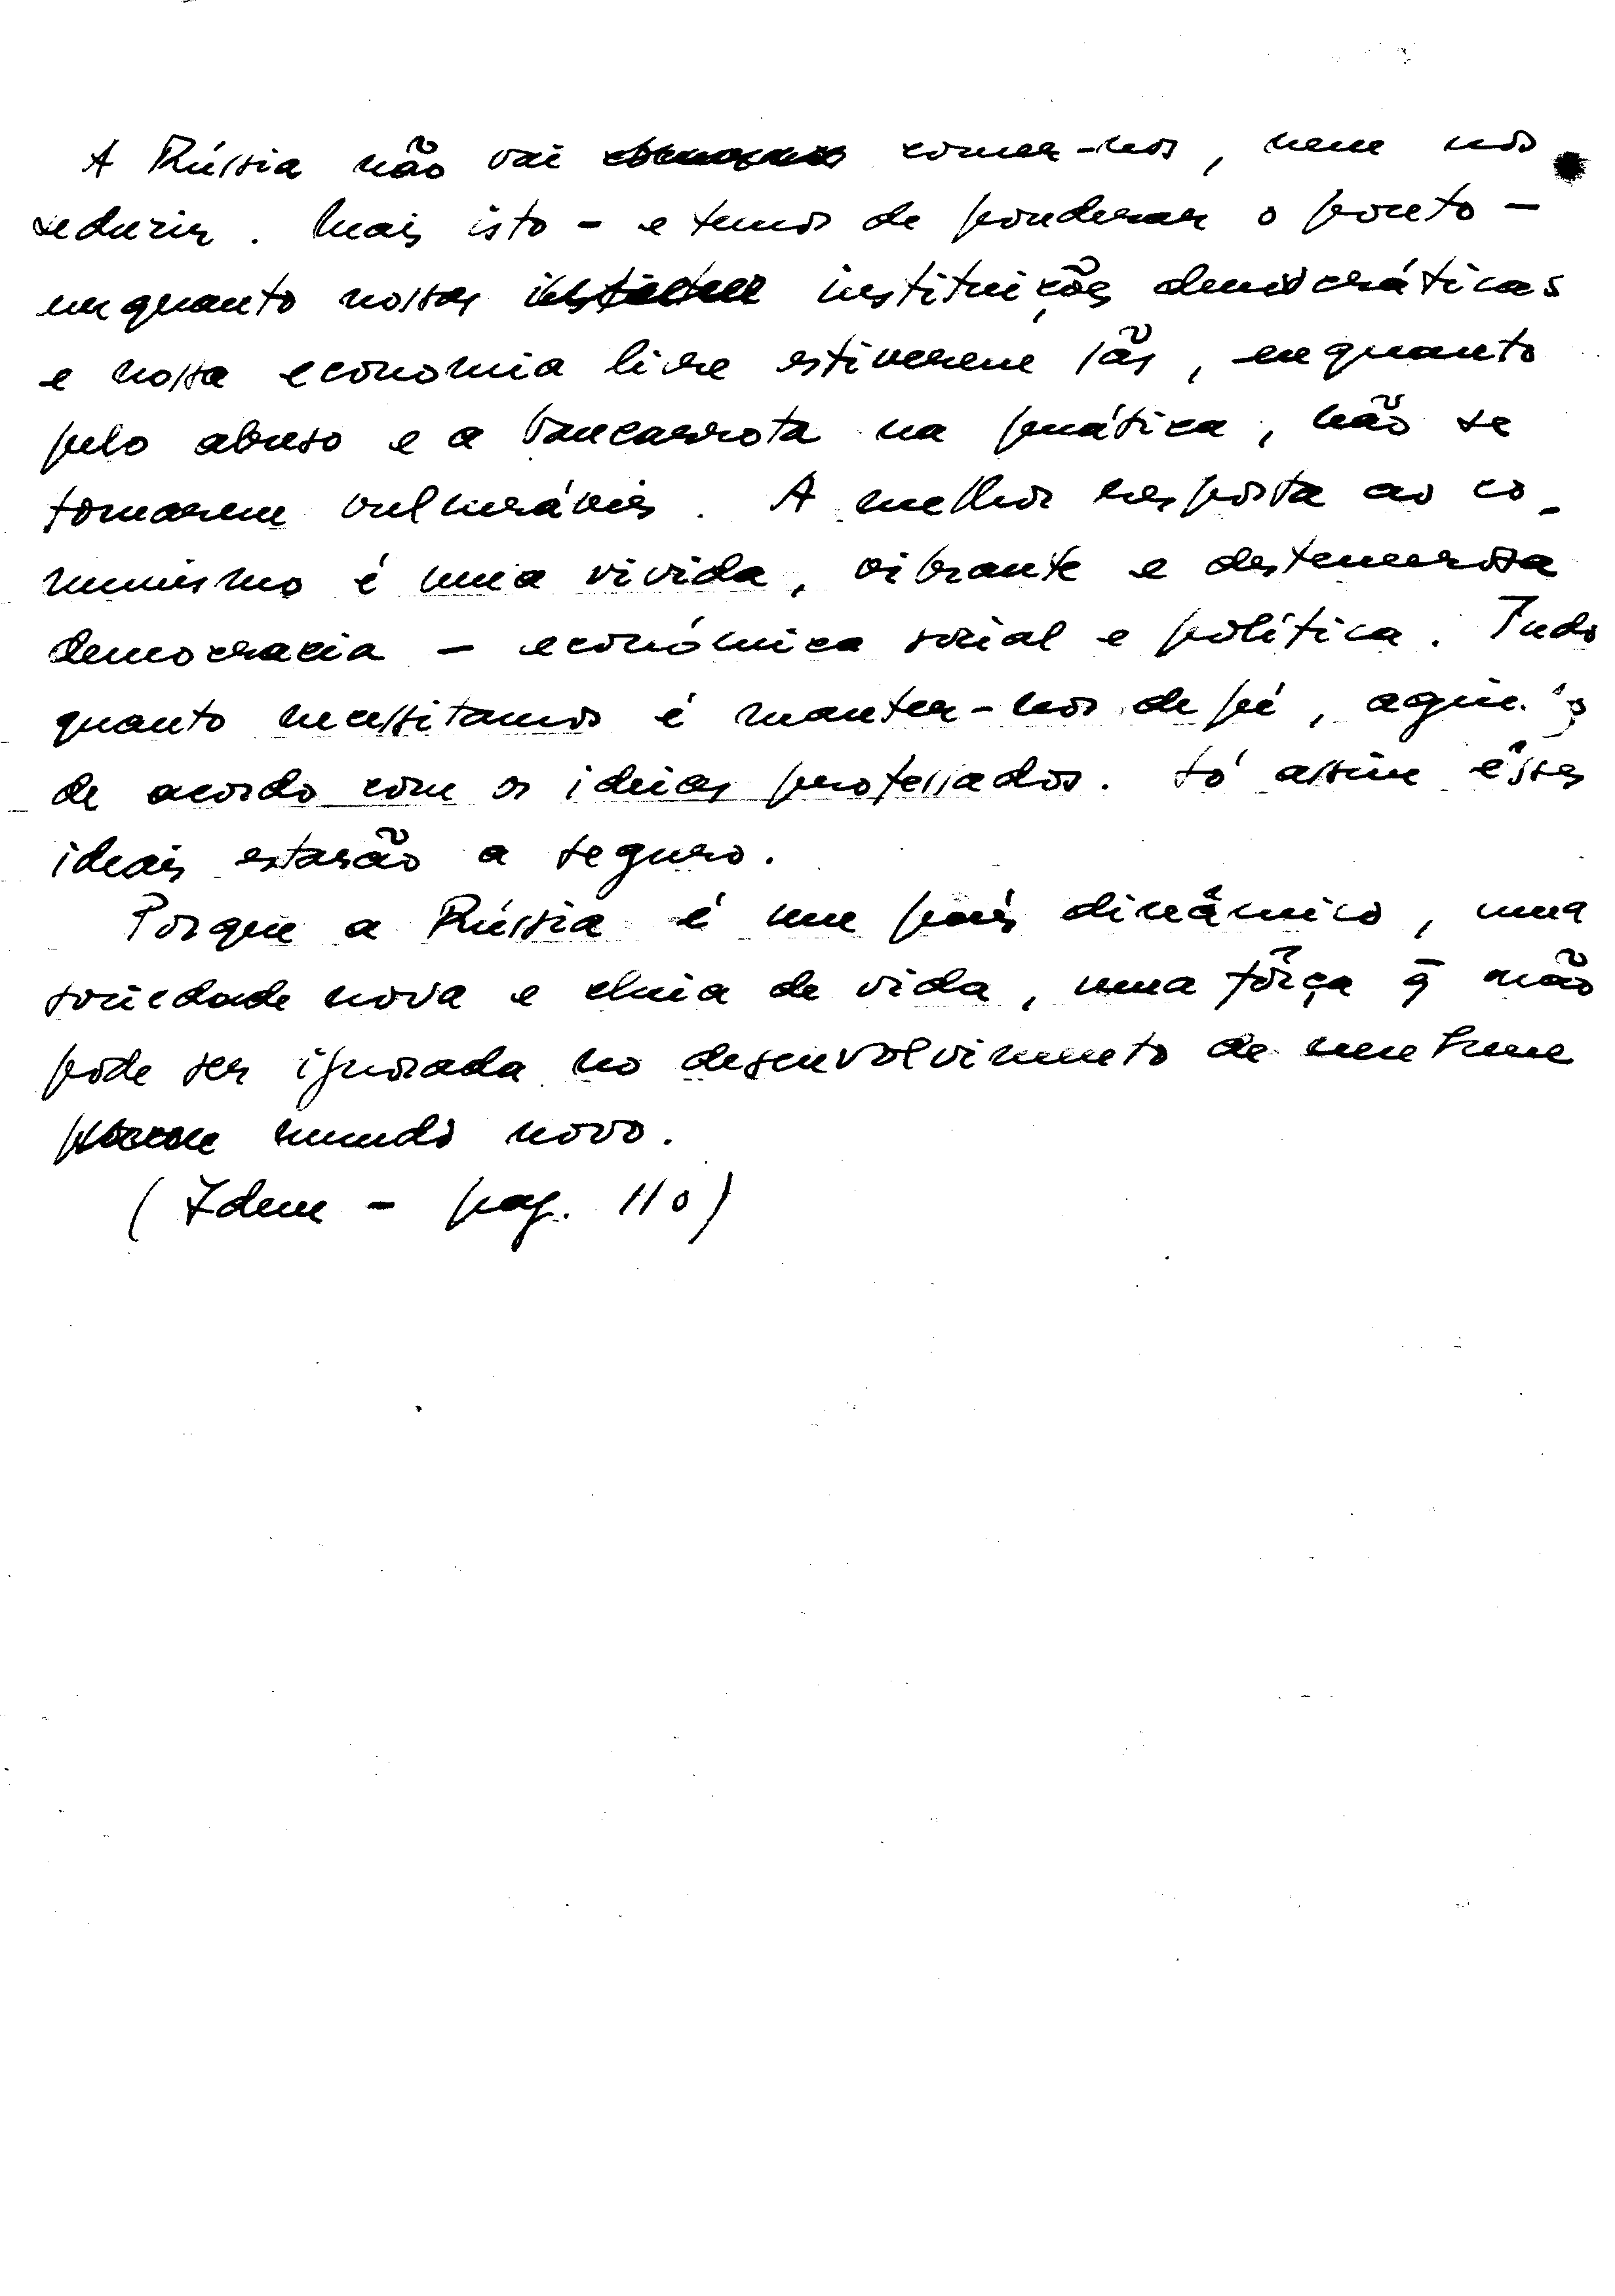 A Rússia não vai comer-nos, nem nos
seduzir. Mais isto - e temos de ponderar o ponto -
enquanto nossas instituições democráticas
e nossa economia livre estiverem sãs, enquanto
pelo abuso e a bancarrota na prática, não se
tornarem vulneráveis. A melhor resposta ao co-
munismo é uma vivida, vibrante e destemerosa
democracia - económica social e política. Tudo
quanto necessitamos é manter-nos de pé, agir
de acordo com os ideias professados. Só assim êsses
ideais estarão a seguro.
Porque a Rússia é um país dinâmico, uma
sociedade nova e cheia de vida, uma fôrça q̄ não
pode ser ignorada no desenvolvimento de nenhum
mundo novo.
(Idem - pag. 110)